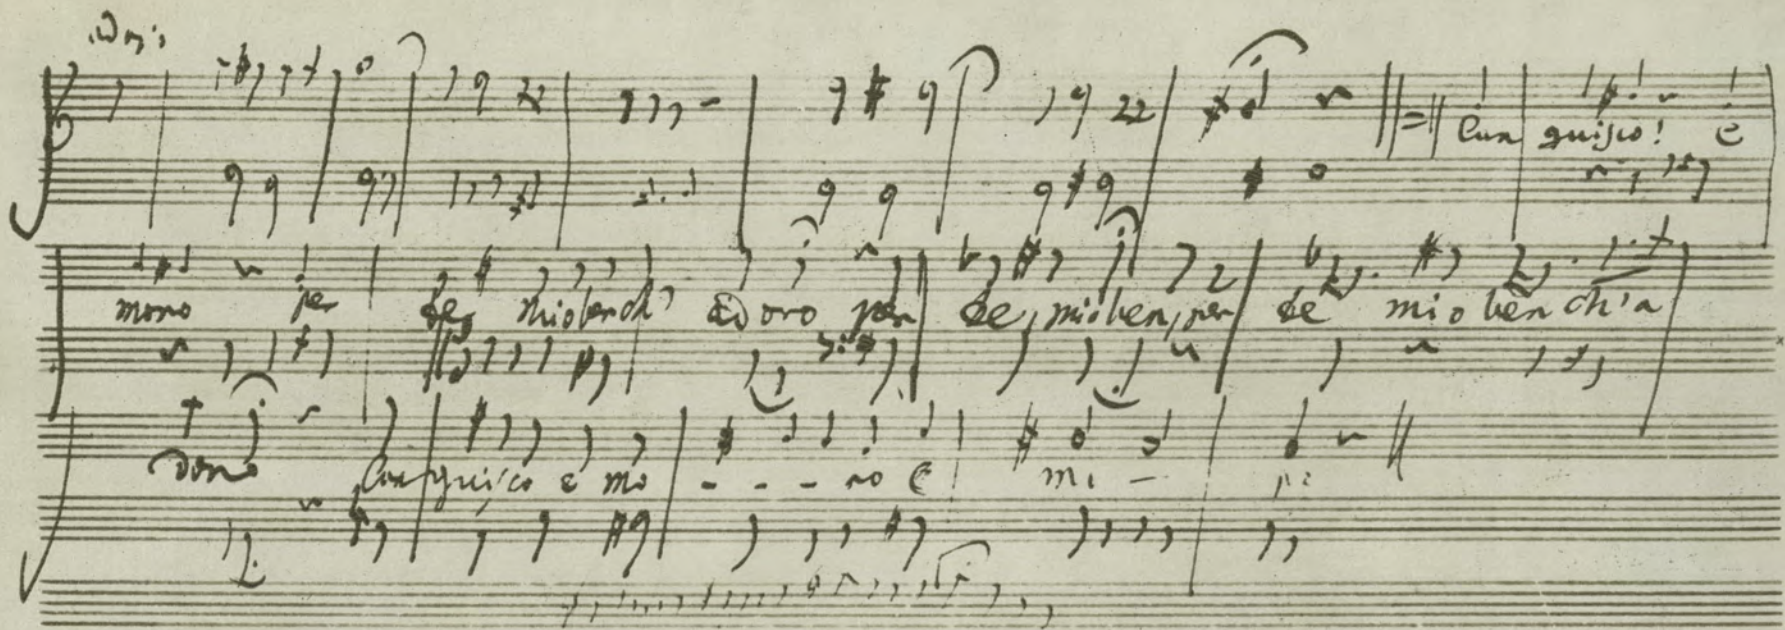 Lan guisco! e
moro per te, mio ben ch' adoro per te, mio ben, per te mio ben ch'a
doro Languisco e mo - - - ro e mi -